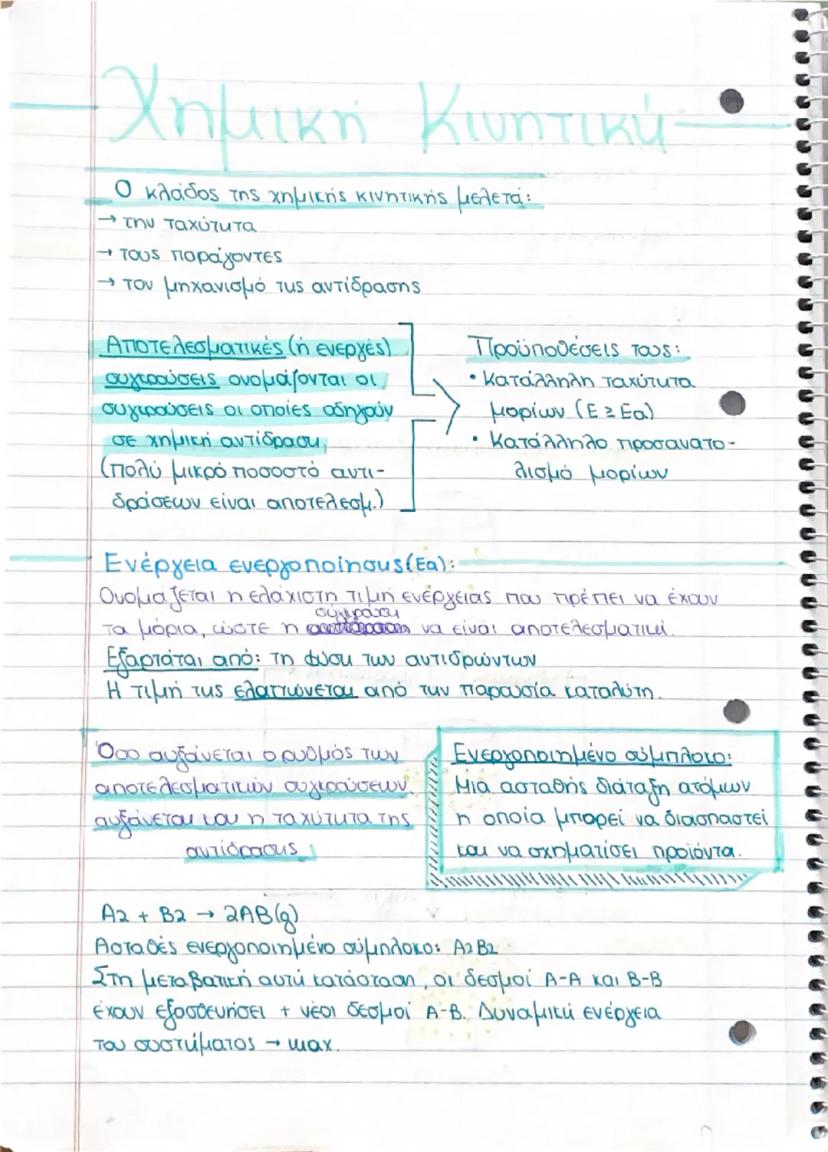 Χημική Κινητική
Ο κλάδος της χημικής κινητικής μελετά:
→ την ταχύτητα
→ τους παράγοντες
→ τον μηχανισμό της αντίδρασης
Αποτελεσματικές (ή ενεργές)
συγκρούσεις ονομάζονται οι
συγκρούσεις οι οποίες οδηγούν
σε χημική αντίδραση.
(Πολύ μικρό ποσοστό αντι-
δράσεων είναι αποτελεσμ.)
Προϋποθέσεις τους:
• Κατάλληλη ταχύτητα
μορίων (Ε ≥ Εa)
• Κατάλληλο προσανατο-
λισμό μορίων
Ενέργεια ενεργοποίησης (Ea):
Ονομάζεται η ελάχιστη τιμή ενέργειας που πρέπει να έχουν
σύγκρουση
τα μόρια, ώστε η να είναι αποτελεσματική.
Εξαρτάται από: τη φύση των αντιδρώντων
Η τιμή της ελαττώνεται από την παρουσία καταλύτη.
Όσο αυξάνεται ο ρυθμός των
αποτελεσματικών συγκρούσεων,
αυξάνεται και η ταχύτητα της
αντίδρασης
Ενεργοποιημένο σύμπλοκο:
Μια ασταθής διάταξη ατόμων
η οποία μπορεί να διασπαστεί
και να σχηματίσει προϊόντα.
A2 + B2 → 2AB(g)
Ασταθές ενεργοποιημένο σύμπλοκο: A2B2
Στη μεταβατική αυτή κατάσταση, οι δεσμοί A-A και B-B
έχουν εξασθενήσει + νέοι δεσμοί A-B. Δυναμική ενέργεια
του συστήματος → max.